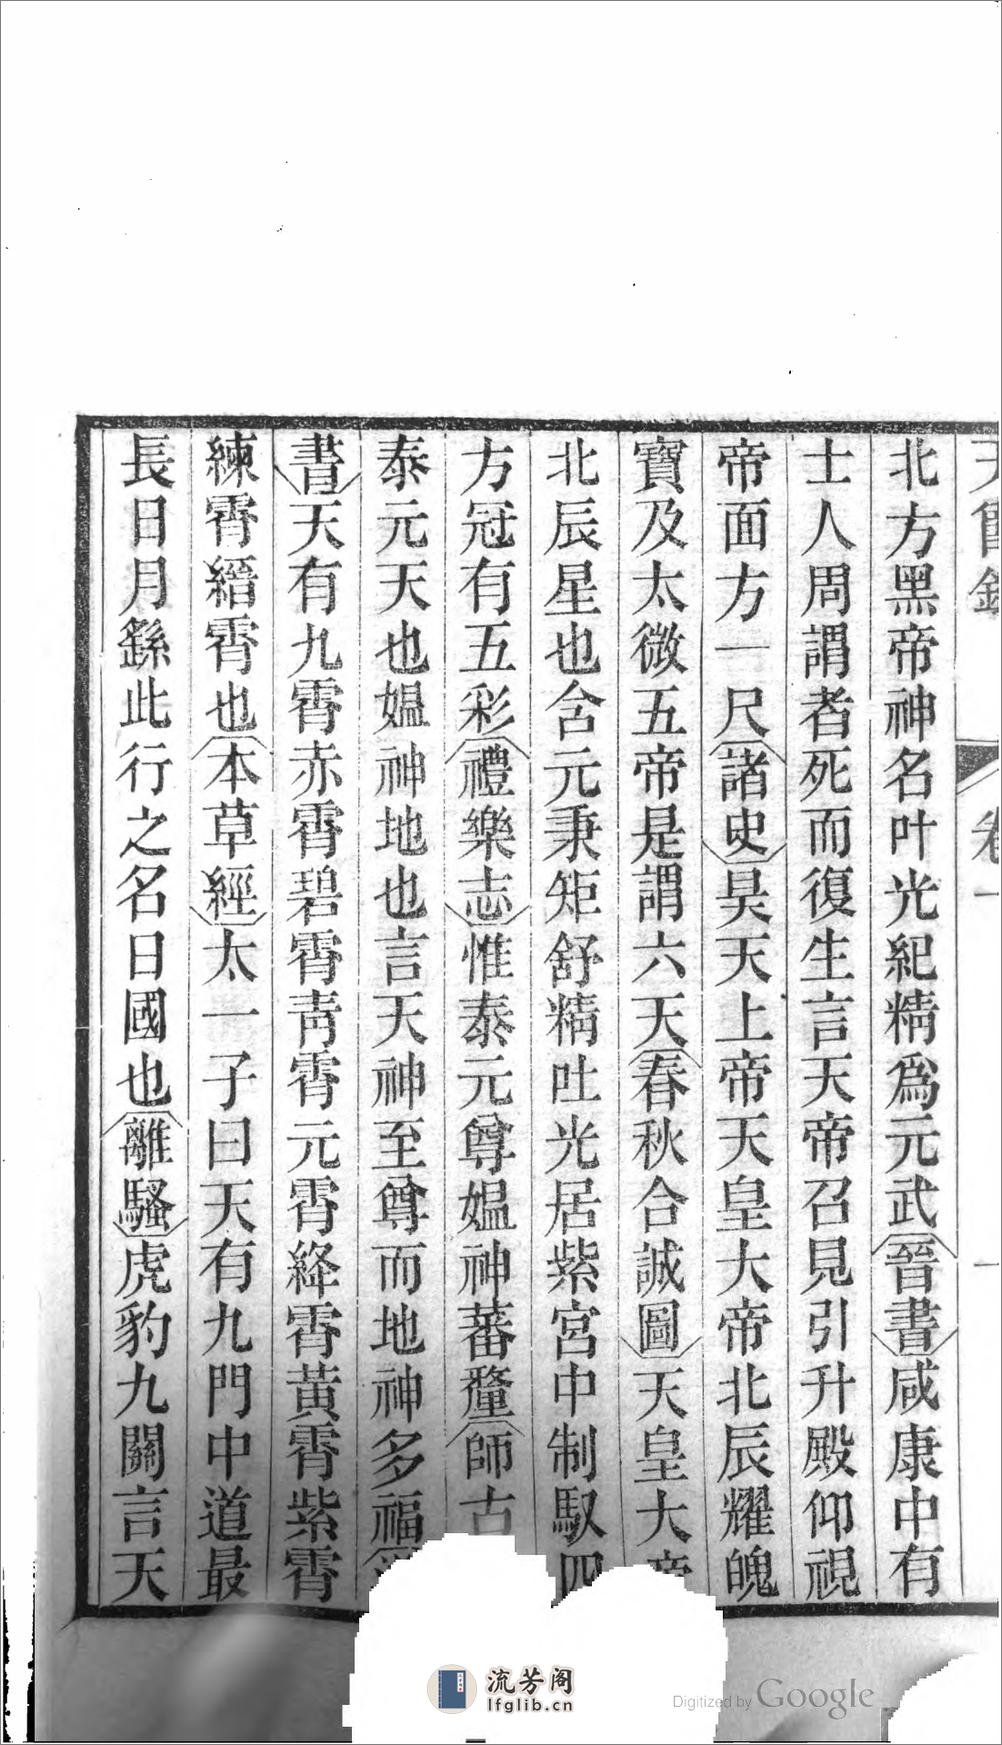 卷一
一
北方黑帝神名叶光紀精爲元武晉書咸康中有
士人周謂者死而復生言天帝召見引升殿仰視
帝面方一尺諸史昊天上帝天皇大帝北辰耀魄
寶及太微五帝是謂六天春秋合誠圖天皇大
北辰星也含元秉矩舒精吐光居紫宮中制馭四
方冠有五彩禮樂志惟泰元尊媼神蕃釐師古
泰元天也媼神地也言天神至尊而地神多福
書天有九霄赤霄碧霄靑霄元霄絳霄黃霄紫霄
練霄縉霄也本草經太一子曰天有九門中道最
長日月繇此行之名曰國也離騷虎豹九關言天
流芳阁
lfglib.cn
Digitized by Google